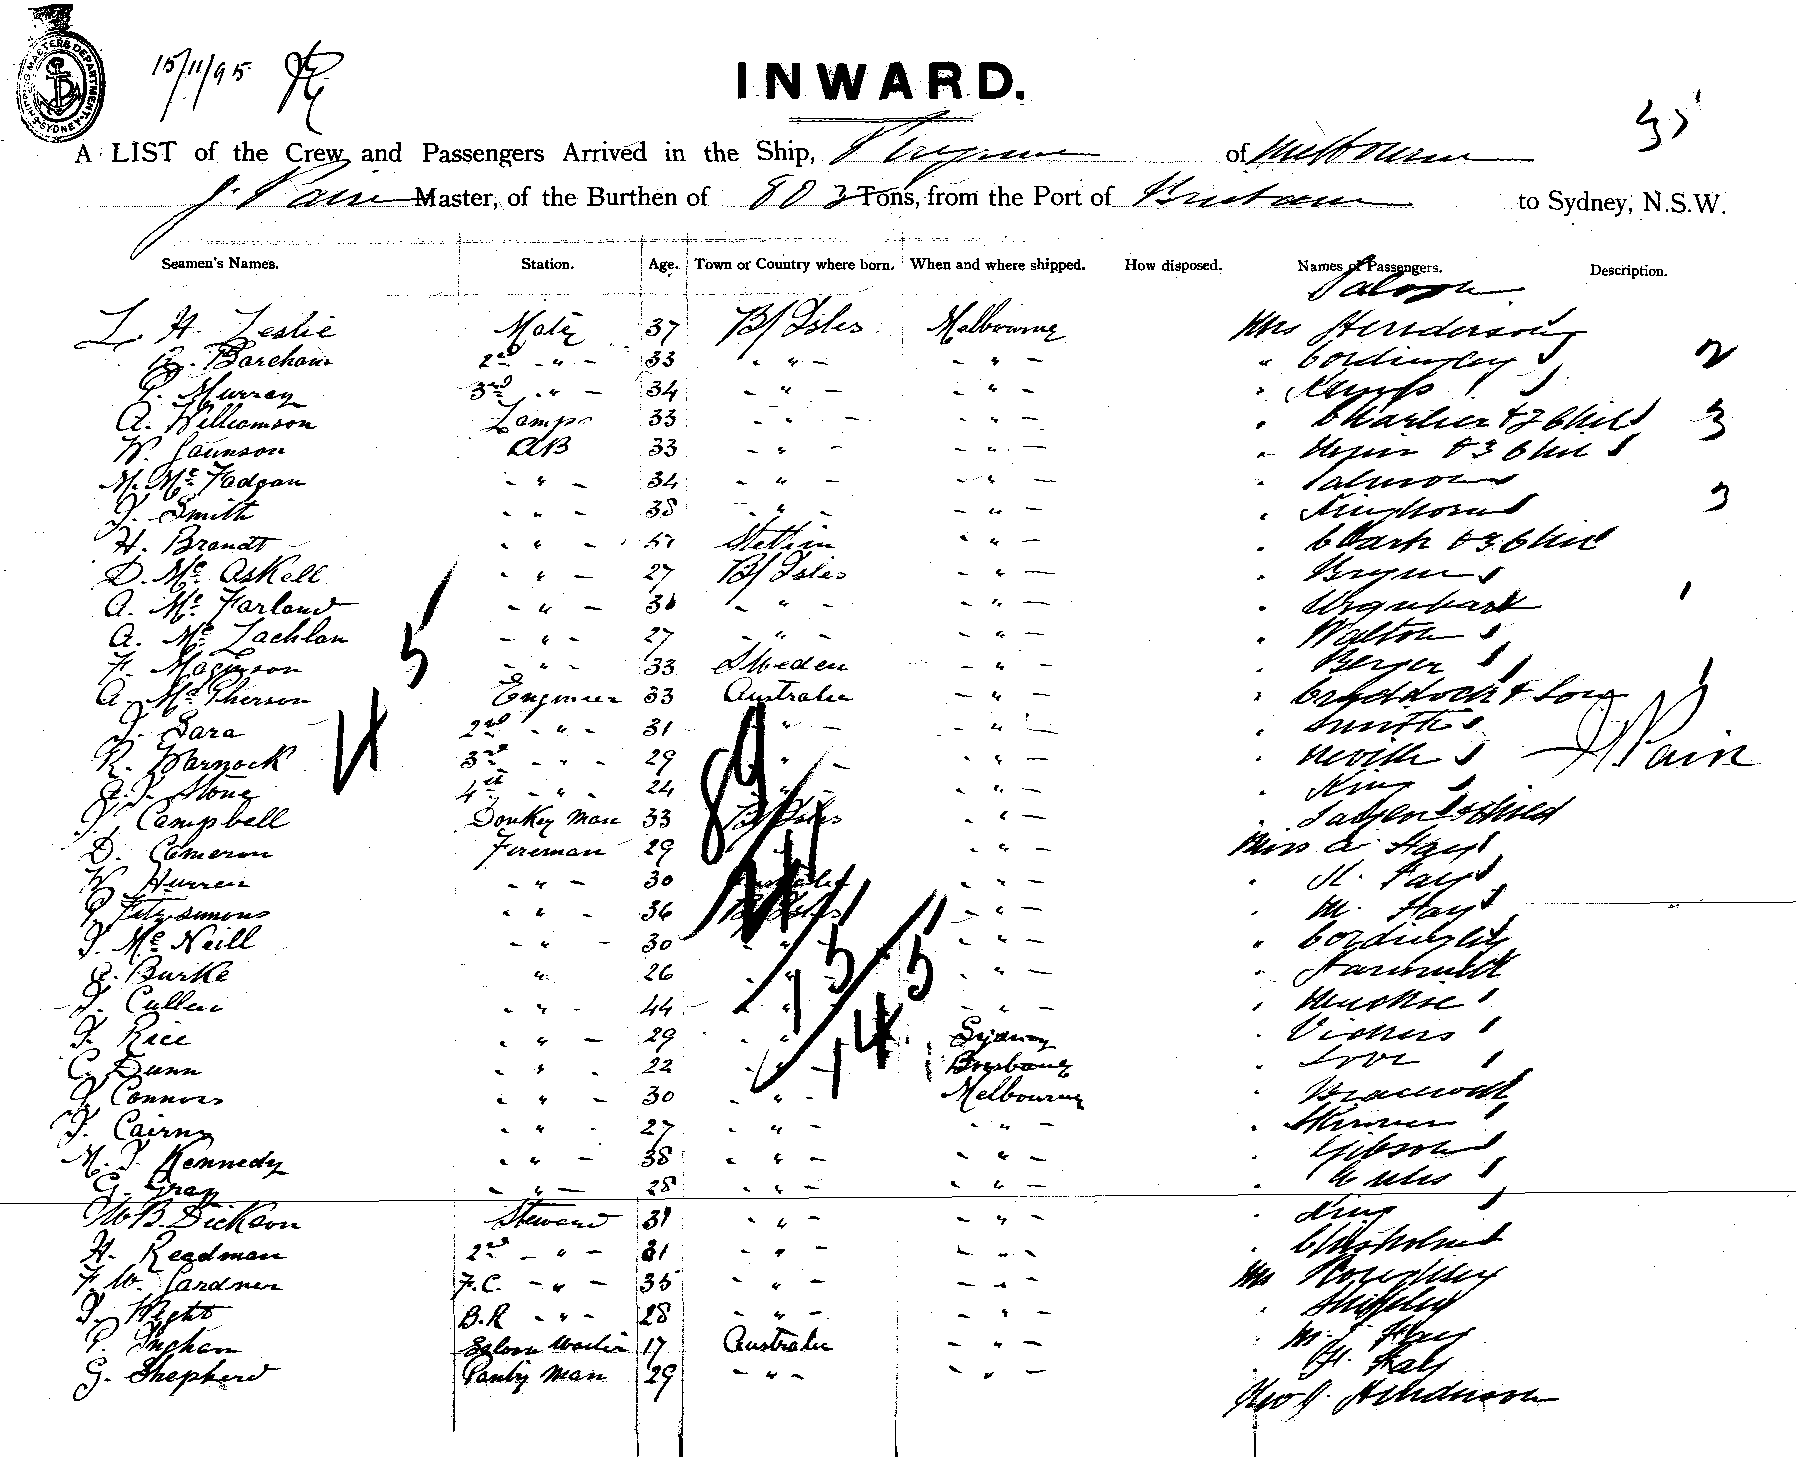 SHIPPING MASTERS DEPARTMENT SYDNEY
15/11/95
INWARD.
35
A LIST of the Crew and Passengers Arrived in the Ship, of Melbourne
J. Pain Master, of the Burthen of 803 Tons, from the Port of Brisbane to Sydney, N.S.W.
Seamen's Names. Station. Age. Town or Country where born. When and where shipped. How disposed. Names of Passengers. Description.
Saloon
L H. Leslie Mate 37 B/ Isles Melbourne Mrs Henderson
Bareham 2nd - " - 33 - " - - " - " Cordingley 2
Murray 3rd - " - 34 - " - - " - "
A. Williamson Lamps 33 - " - - " - " Charlier & 2 Chil 3
W. Jaunson AB 33 - " - - " - " & 3 Chil
M. Mc Fadgan - " - 34 - " - - " - " Salmon
J. Smith - " - 38 - " - - " - " Kinghorne 3
H. Brandt - " - 51 Stettin - " - " Clark & 3 Chil
D. Mc Askell - " - 27 B/ Isles - " - " Bryan
A. Mc Farland - " - - " - - " - " Urquhart 1
A. Mc Lachlan - " - 27 - " - - " - " Walton
F. Magnuson - " - 33 Sweden - " - " Berger
A. Mc Pherson Engineer 33 Australia - " - " Craddock & Son
J. Sara 2nd - " - 31 - " - - " - " Smith
R. Warnock 3rd - " - 29 - " - - " - " Neville J Pain
Stone 4th - " - 24 - " - - " - " King
J. Campbell Donkey man 33 B/ Isles - " - " & Child
D. Cameron Fireman 29 - " - Miss A Hay
W. Hurren - " - 30 Australia - " - " Hay
Fitzsimons - " - 36 B/ Isles - " - " M. Hay
J. Mc Neill - " - 30 - " - - " - " Cordingley
Burke " 26 - " - - " - "
J. Cullen " 44 - " - - " - "
J. Rice - " - 29 - " - Sydney " Vickers
C. Dunn - " - 22 - " - Brisbane " Love
J. Connors - " - 30 - " - Melbourne "
J. Cairns - " - 27 - " - - " - " Skinner
M. J. Kennedy - " - 38 - " - - " - " Gibson
G. Gray - " - 28 - " - - " - "
W B. Dickson Steward 31 - " - - " - " King
H. Readman 2nd - " - 31 - " - - " - " Chisholm
F. W. Gardner F.C. - " - 35 - " - - " - Mr
J. Wight B.R - " - 28 - " - - " - "
P. Ingham Saloon Waiter 17 Australia - " - " M. J. Hay
G. Shepherd Pantry man 29 - " - - " - " H. Hay
Geo J. Henderson